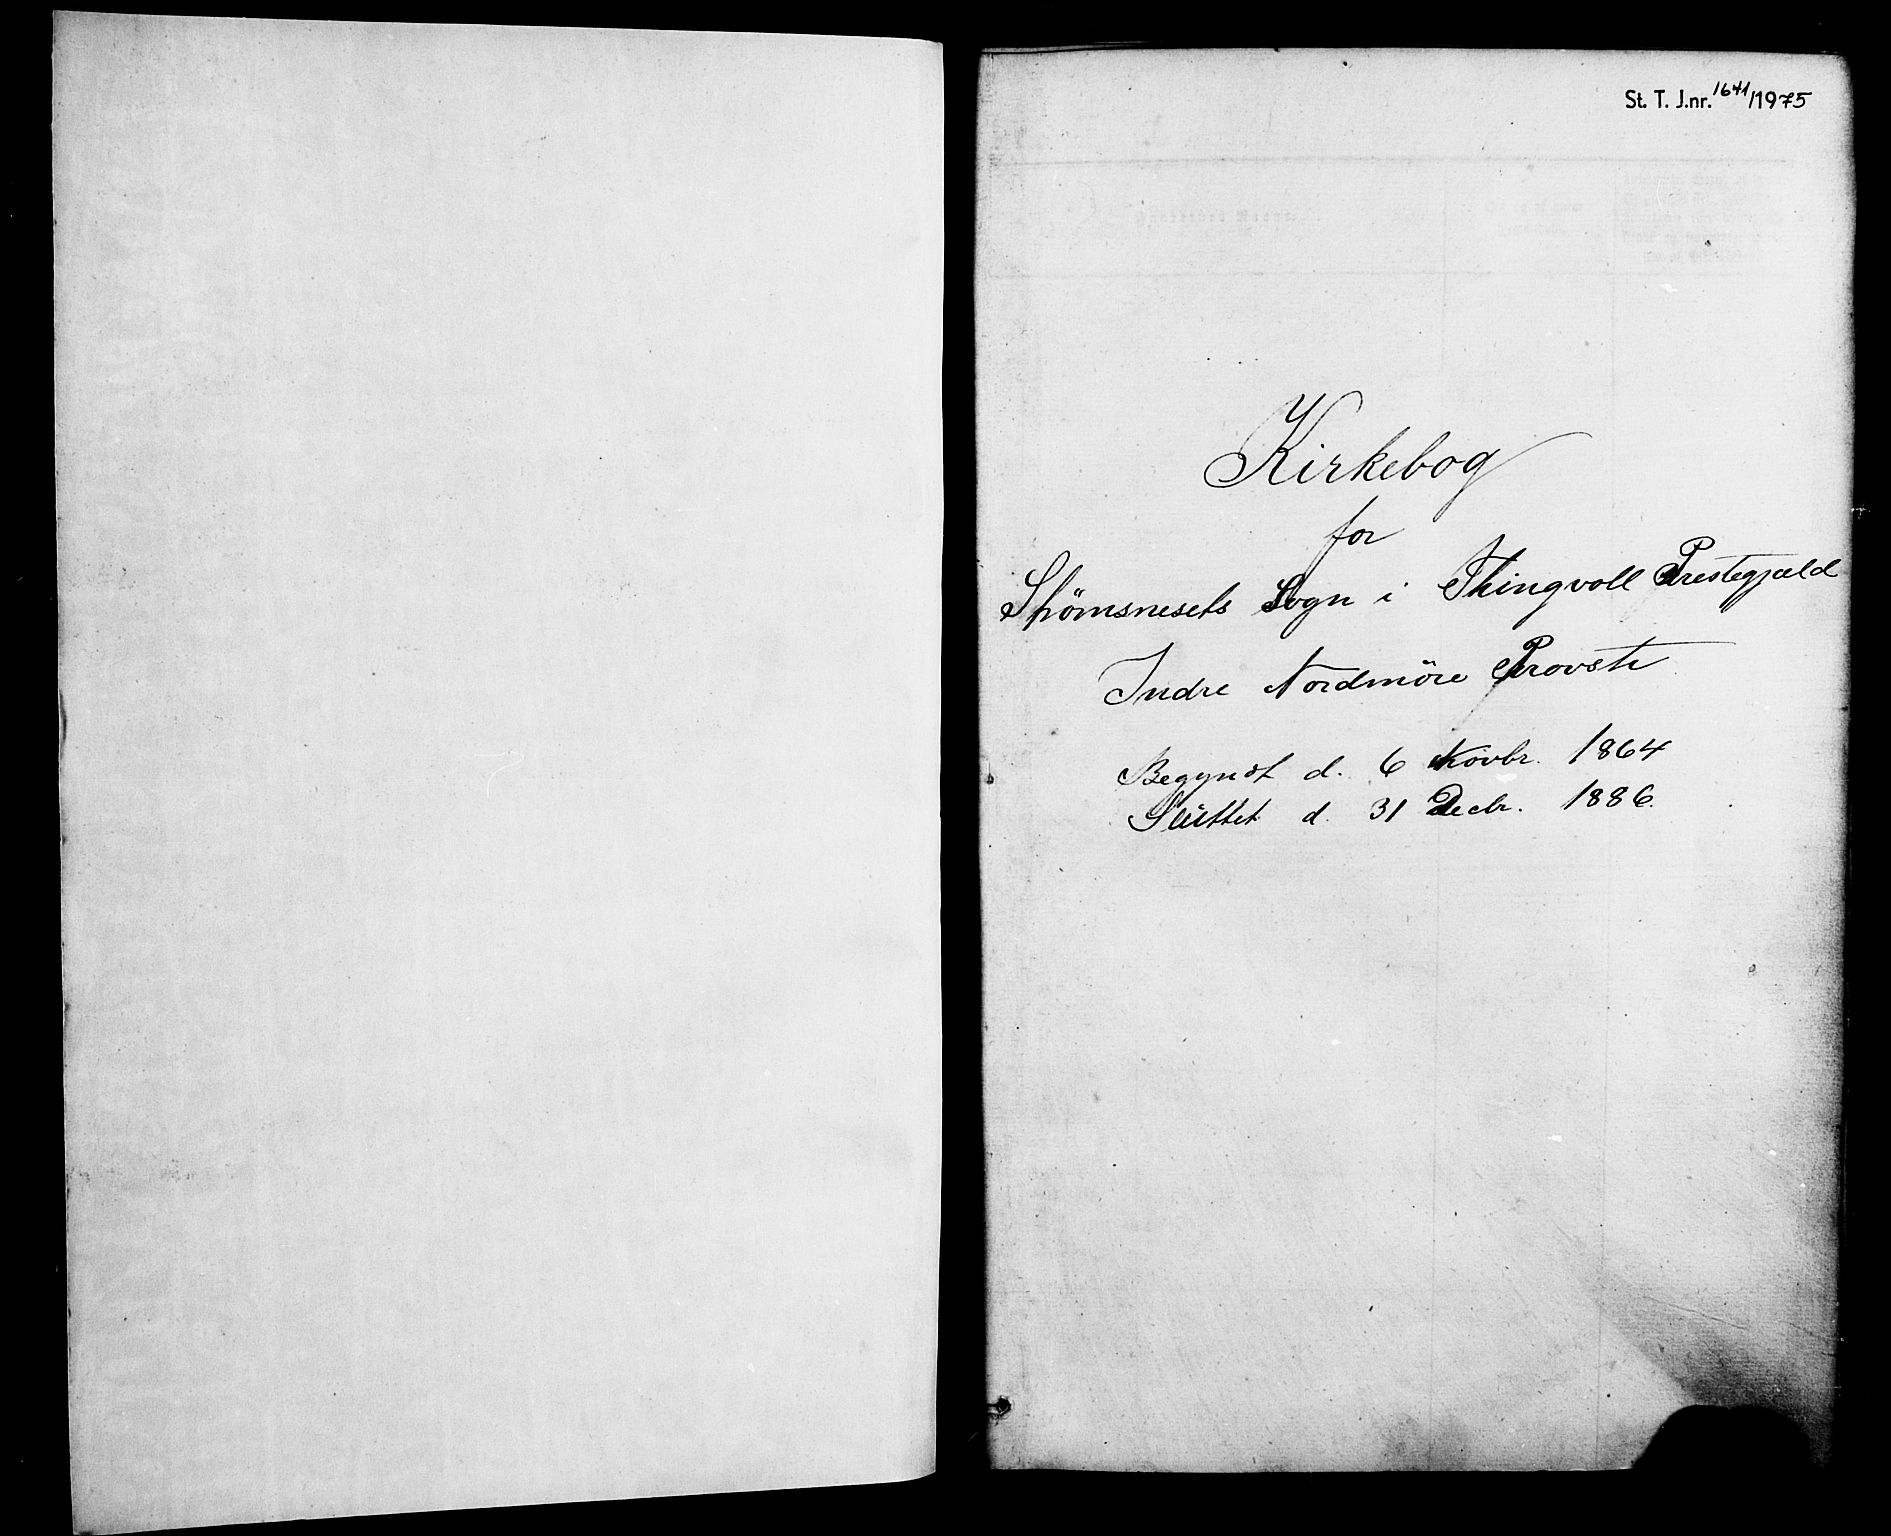 St. T. J.nr. 1641/1975
Kirkebog
for
Strømsnesets Sogn i Thingvoll Prestegjæld
Indre Nordmöre Provsti
Begyndt d. 6 Novbr. 1864
Sluttet d. 31 Decbr. 1886.